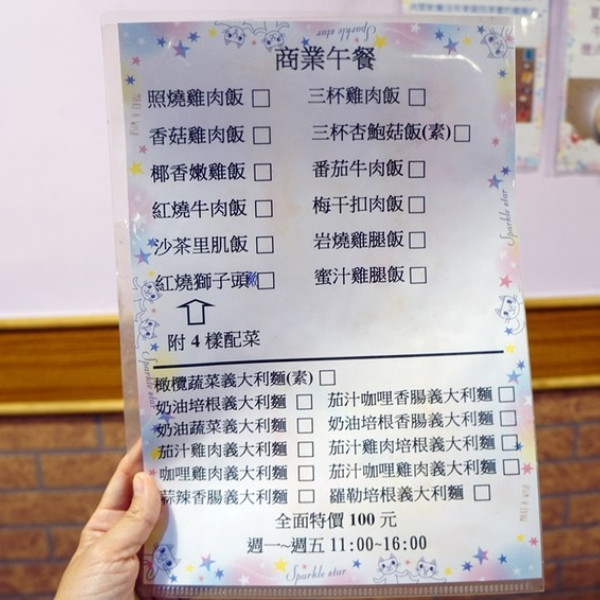 Sparkle star
商業午餐
照燒雞肉飯 □ 三杯雞肉飯 □
香菇雞肉飯 □ 三杯杏鮑菇飯(素) □
椰香嫩雞飯 □ 番茄牛肉飯 □
紅燒牛肉飯 □ 梅干扣肉飯 □
沙茶里肌飯 □ 岩燒雞腿飯 □
紅燒獅子頭 □ 蜜汁雞腿飯 □
附 4 樣配菜
橄欖蔬菜義大利麵(素) □
奶油培根義大利麵 □ 茄汁咖哩香腸義大利麵 □
奶油蔬菜義大利麵 □ 奶油培根香腸義大利麵 □
茄汁雞肉義大利麵 □ 茄汁雞肉培根義大利麵 □
咖哩雞肉義大利麵 □ 茄汁咖哩雞肉義大利麵 □
蒜辣香腸義大利麵 □ 羅勒培根義大利麵 □
全面特價 100 元
週一~週五 11:00~16:00
Sparkle star
Sparkle star
Sparkle star